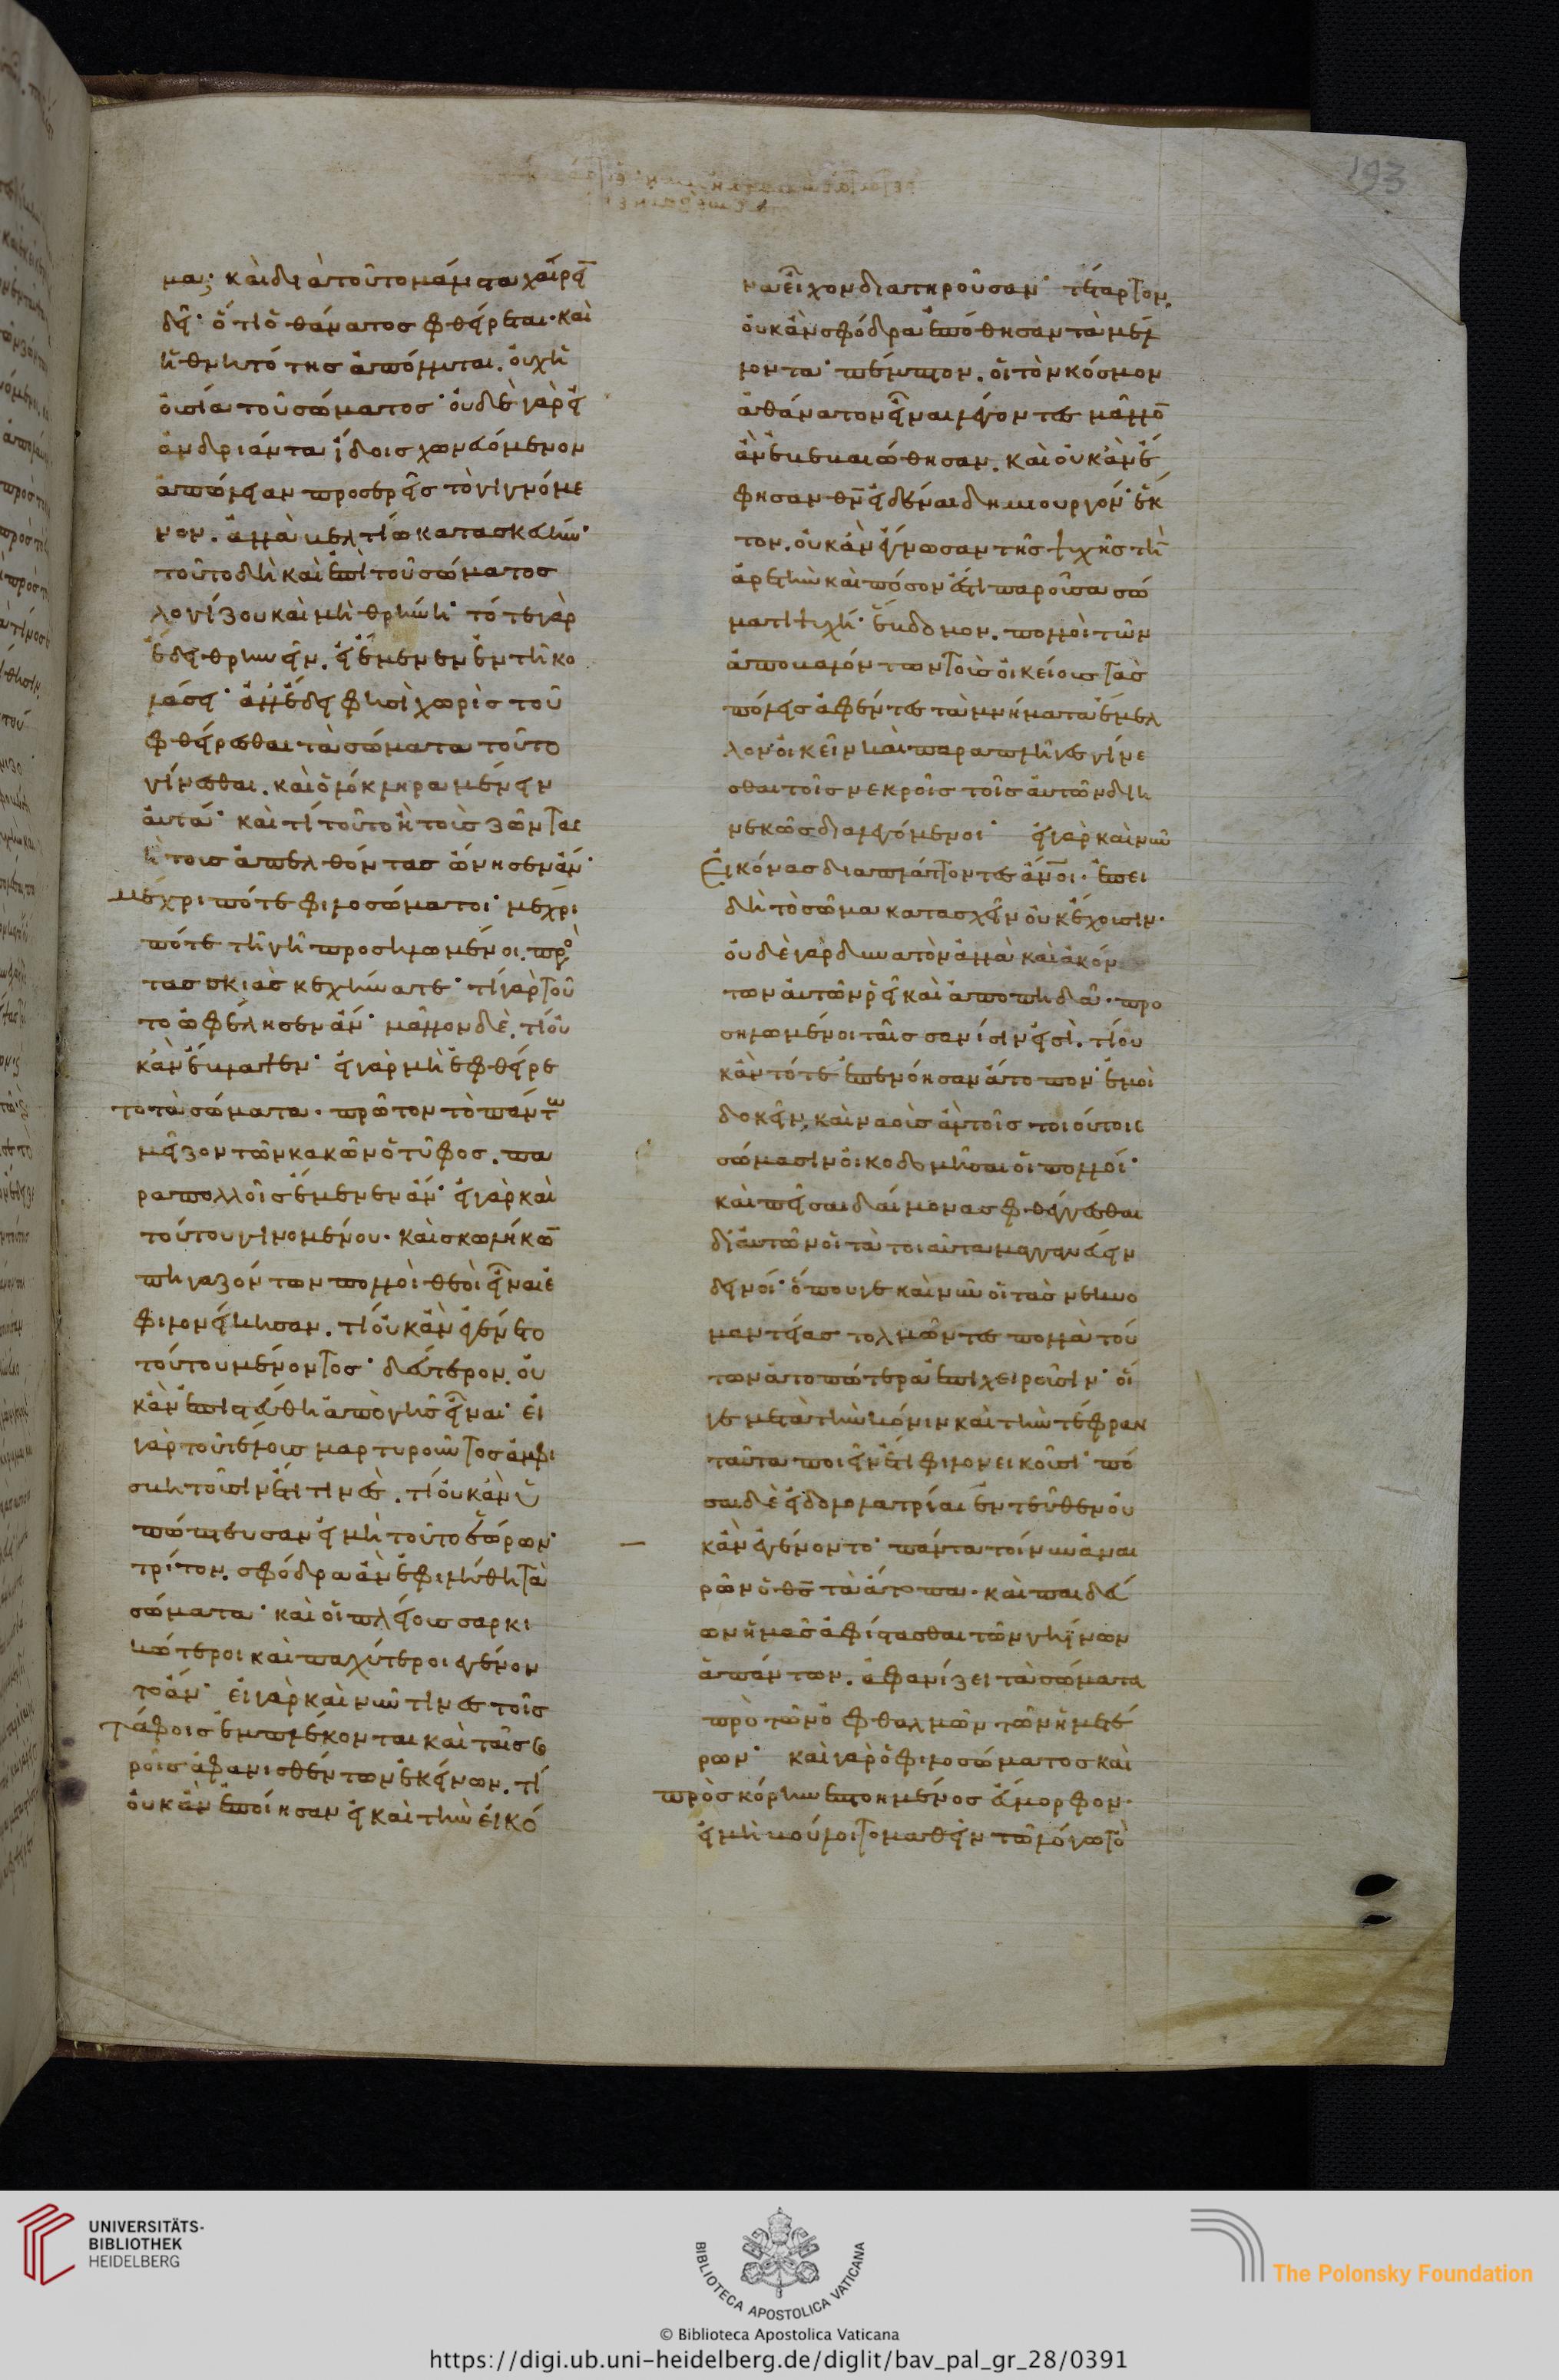 μα· καὶ διὰ τοῦτο μάλιστα χαίρει̅
δεῖ· ὅτι ὁ θάνατος φθείρεται· καὶ
ἡ θνητότης ἀπόλλυται. οὐχ ἡ
οὐσία τοῦ σώματος· οὐδὲ γὰρ εἰ
ἀνδριάντα ἴδοις χωνευόμενον
ἀπώλειαν προσερεῖς τὸ γιγνόμε
νον. ἀλλὰ βελτίω κατασκευήν·
τοῦτο δὴ καὶ ἐπὶ τοῦ σώματος
λογίζου καὶ μὴ θρήνει· τότε γὰρ
ἔδει θρηνεῖν. εἰ ἔμενεν ἐν τῇ κο
λάσει· ἀλλ᾽ ἔδει φησὶ χωρὶς τοῦ
φθείρεσθαι τὰ σώματα τοῦτο
γίνεσθαι. καὶ ὁλόκληρα μένειν
αὐτά· καὶ τί τοῦτο ἢ τοὺς ζῶντας
ἢ τοὺς ἀπελθόντας ὤνησεν ἄν·
μέχρι πότε φιλοσώματοι· μέχρι
πότε τῇ γῇ προσηλωμένοι. πρὸ
τὰς σκιὰς κεχήνατε· τί γὰρ τοῦ
το ὠφέλησεν ἄν· μᾶλλον δὲ, τί οὐ
κ ἂν ἔβλαψεν· εἰ γὰρ μὴ ἐφθείρε
το τὰ σώματα. πρῶτον τὸ πάντω
μεῖζον τῶν κακῶν ὁ τῦφος. πα
ρὰ πολλοῖς ἔμενεν ἄν· εἰ γὰρ καὶ
τούτου γινομένου. καὶ σκωλήκω̅
πηγαζόντων πολλοὶ θεοὶ εἶναι ἐ
φιλονείκησαν. τί οὐκ ἂν ἐγένετο
τούτου μένοντος· δεύτερον. οὐ
κ ἂν ἐπιστεύθη ἀπὸ γῆς εἶναι· εἰ
γὰρ τοῦ τέλους μαρτυροῦντος ἀμφι
σβητοῦσιν ἔτι τινές. τί οὐκ ἂν ὑ
πώπτευσαν εἰ μὴ τοῦτο ἑώρων·
τρίτον. σφόδρα ἂν ἐφιλήθη τὰ
σώματα· καὶ οἱ πλείους σαρκι
κώτεροι καὶ παχύτεροι ἐγένον
το ἄν· εἰ γὰρ καὶ νῦν τινες τοῖς
τάφοις ἐμπλέκονται καὶ ταῖς σο
ροῖς ἀφανισθέντων ἐκείνων. τί
οὐκ ἂν ἐποίησαν εἰ καὶ τὴν εἰκό
να εἶχον διατηροῦσαν· τέταρτον.
οὐκ ἂν σφόδρα ἐπόθησαν τὰ μέλ
λοντα· πέμπτον. οἱ τὸν κόσμον
ἀθάνατον εἶναι λέγοντες μᾶλλο̅
ἂν ἐβεβαιώθησαν. καὶ οὐκ ἂν ἔ
φησαν θν̅ εἰδέναι δημιουργόν· ἕκ
τον. οὐκ ἂν ἔγνωσαν τῆς ψυχῆς τὴ̅
ἀρετὴν καὶ πόσον ἐστὶ παροῦσα σώ
ματι ψυχή· ἕβδομον. πολλοὶ τῶν
ἀποβαλόντων τοὺς οἰκείους τὰς
πόλεις ἀφέντες τὰ μνήματα ἔμελ
λον οἰκεῖν καὶ παραπλῆγες γίνε
σθαι τοῖς νεκροῖς τοῖς αὐτῶν διη
νεκῶς διαλεγόμενοι· εἰ γὰρ καὶ νῦν
Εἰκόνας διαπλάττοντες ἄνο̅ι· ἐπει
δὴ τὸ σῶμα κατασχεῖν οὐκ ἔχουσιν.
οὐδὲ γὰρ δυνατὸν ἀλλὰ καὶ ἀκόν
των αὐτῶν ῥεῖ καὶ ἀποπηδᾶ. προ
σηλωμένοι ταῖς σανίσιν εἰσὶ. τί οὐ
κ ἂν τότε ἐπενόησαν ἄτοπον· ἐμοὶ
δοκεῖν, καὶ ναοὺς ἂν τοῖς τοιούτοις
σώμασιν οἰκοδομῆσαι οἱ πολλοί·
καὶ πεῖσαι δαίμονας φθέγγεσθαι
δι᾽ αὐτῶν οἱ τὰ τοιαῦτα μαγγανεύειν
δεινοί· ὅπου γε καὶ νῦν οἱ τὰς νεκυο
μαντείας τολμῶντες πολλὰ τού
των ἀτοπώτερα ἐπιχειροῦσιν· οἵ
γε μετὰ τὴν κόνιν καὶ τὴν τέφραν
ταῦτα ποιεῖν ἔτι φιλονεικοῦσι· πό
σαι δὲ εἰδωλολατρίαι ἐντεῦθεν οὐ
κ ἂν ἐγένοντο· πάντα τοίνυν ἀναι
ρῶν ὁ θς̅ τὰ ἄτοπα. καὶ παιδεύ
ων ἡμᾶς ἀφίστασθαι τῶν γηΐνων
ἁπάντων. ἀφανίζει τὰ σώματα
πρὸ τῶν ὀφθαλμῶν τῶν ἡμετέ
ρων· καὶ γὰρ ὁ φιλοσώματος καὶ
πρὸς κόρην ἐπτοημένος εὔμορφον.
εἰ μὴ βούλοιτο μαθεῖν τῶ λόγω τὸ
193
UNIVERSITÄTS-
BIBLIOTHEK
HEIDELBERG
BIBLIOTECA APOSTOLICA VATICANA
The Polonsky Foundation
© Biblioteca Apostolica Vaticana
https://digi.ub.uni-heidelberg.de/diglit/bav_pal_gr_28/0391